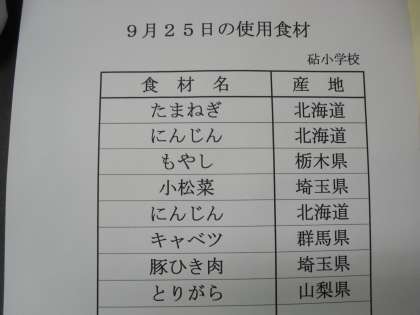 9月25日の使用食材
砧小学校
食 材 名 産 地
たまねぎ 北海道
にんじん 北海道
もやし 栃木県
小松菜 埼玉県
にんじん 北海道
キャベツ 群馬県
豚ひき肉 埼玉県
とりがら 山梨県